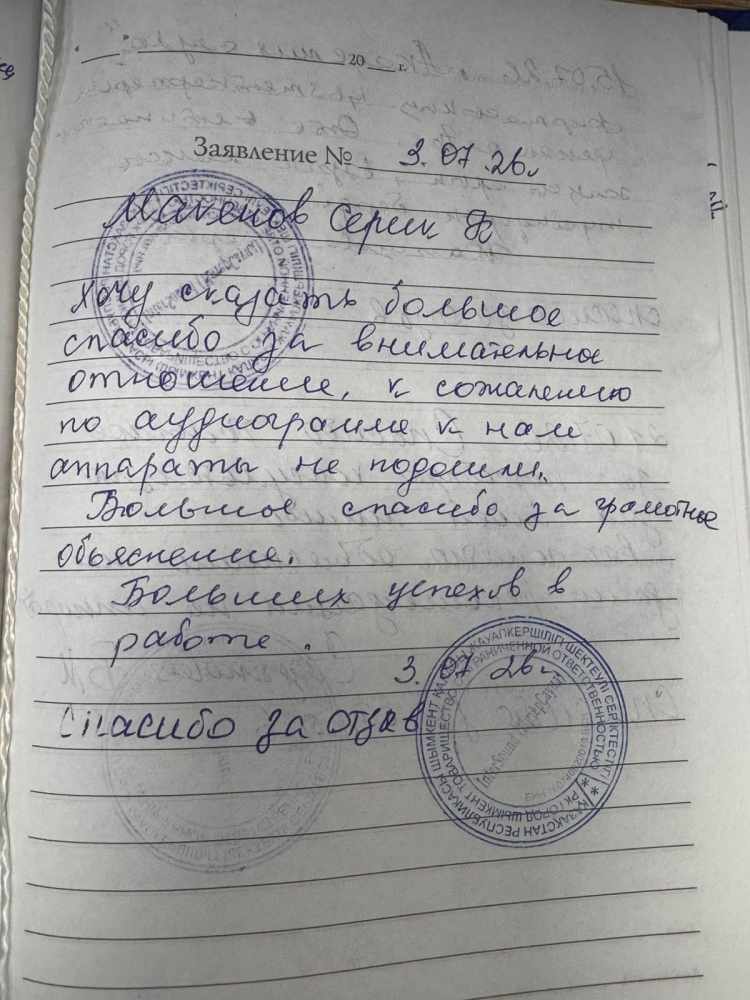 20 г.
Заявление № 3.07.26г
Макенов Серик
Хочу сказать большое
спасибо за внимательное
отношение, к сожалению
по аудиограмме к нам
аппараты не подошли.
Большое спасибо за грамотное
обьяснение.
Больших успехов в
работе.
3.07 26г.
Спасибо за отзыв
ҚАЗАҚСТАН РЕСПУБЛИКАСЫ ШЫМКЕНТ ҚАЛАСЫ ЖАУАПКЕРШІЛІГІ ШЕКТЕУЛІ СЕРІКТЕСТІГІ
РК ГОРОД ШЫМКЕНТ ТОВАРИЩЕСТВО С ОГРАНИЧЕННОЙ ОТВЕТСТВЕННОСТЬЮ